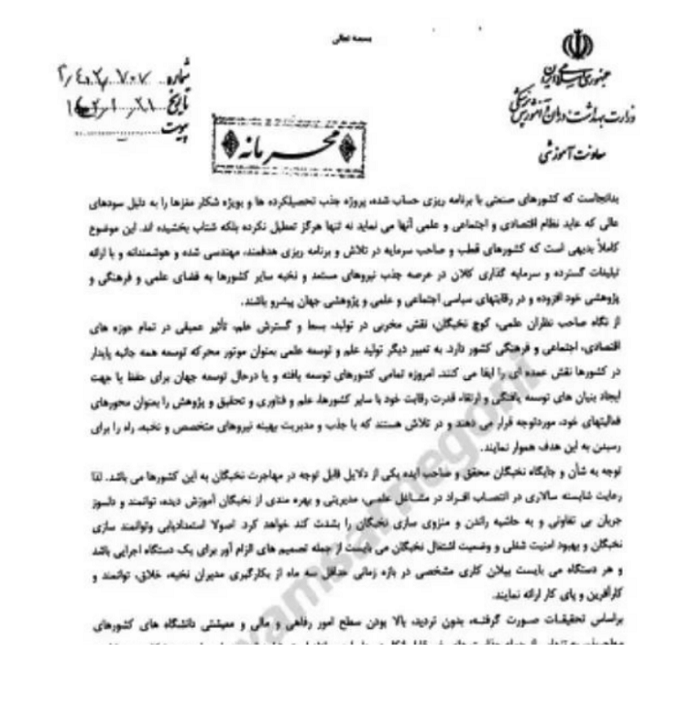 بسمه تعالی
جمهوری اسلامی ایران
وزارت بهداشت درمان و آموزش پزشکی
معاونت آموزشی
شماره
تاریخ
پیوست
محرمانه
بدانجاست که کشورهای صنعتی با برنامه ریزی حساب شده، پروژه جذب تحصیلکرده ها و بویژه شکار مغزها را به دلیل سودهای
عالی که عاید نظام اقتصادی و اجتماعی و علمی آنها می نماید نه تنها هرگز تعطیل نکرده بلکه شتاب بخشیده اند. این موضوع
کاملاً بدیهی است که کشورهای قطب و صاحب سرمایه در تلاش و برنامه ریزی هدفمند، مهندسی شده و هوشمندانه و با ارائه
تبلیغات گسترده و سرمایه گذاری کلان در عرصه جذب نیروهای مستعد و نخبه سایر کشورها به فضای علمی و فرهنگی و
پژوهشی خود افزوده و در رقابتهای سیاسی اجتماعی و علمی و پژوهشی جهان پیشرو باشند.
از نگاه صاحب نظران علمی، کوچ نخبگان، نقش مخربی در تولید، بسط و گسترش علم، تأثیر عمیقی در تمام حوزه های
اقتصادی، اجتماعی و فرهنگی کشور دارد. به تعبیر دیگر تولید علم و توسعه علمی بعنوان موتور محرکه توسعه همه جانبه پایدار
در کشورها نقش عمده ای را ایفا می کنند. امروزه تمامی کشورهای توسعه یافته و یا درحال توسعه جهان برای حفظ یا جهت
ایجاد بنیان های توسعه یافتگی و ارتقاء قدرت رقابت خود با سایر کشورها، علم و فناوری و تحقیق و پژوهش را بعنوان محورهای
فعالیتهای خود، موردتوجه قرار می دهند و در تلاش هستند که با جذب و مدیریت بهینه نیروهای متخصص و نخبه، راه را برای
رسیدن به این هدف هموار نمایند.
توجه به شأن و جایگاه نخبگان محقق و صاحب ایده یکی از دلایل قابل توجه در مهاجرت نخبگان به این کشورها می باشد. لذا
رعایت شایسته سالاری در انتصاب افراد در مشاغل علمی، مدیریتی و بهره مندی از نخبگان آموزش دیده، توانمند و دلسوز
جریان بی تفاوتی و به حاشیه راندن و منزوی سازی نخبگان را بشدت کند خواهد کرد. اصولا استعدادیابی وتوانمند سازی
نخبگان و بهبود امنیت شغلی و وضعیت اشتغال نخبگان می بایست از جمله تصمیم های الزام آور برای یک دستگاه اجرایی باشد
و هر دستگاه می بایست بیلان کاری مشخصی در بازه زمانی حداقل سه ماه از بکارگیری مدیران نخبه، خلاق، توانمند و
کارآفرین و پای کار ارائه نمایند.
براساس تحقیقات صورت گرفته، بدون تردید، بالا بودن سطح امور رفاهی و مالی و معیشتی دانشگاه های کشورهای